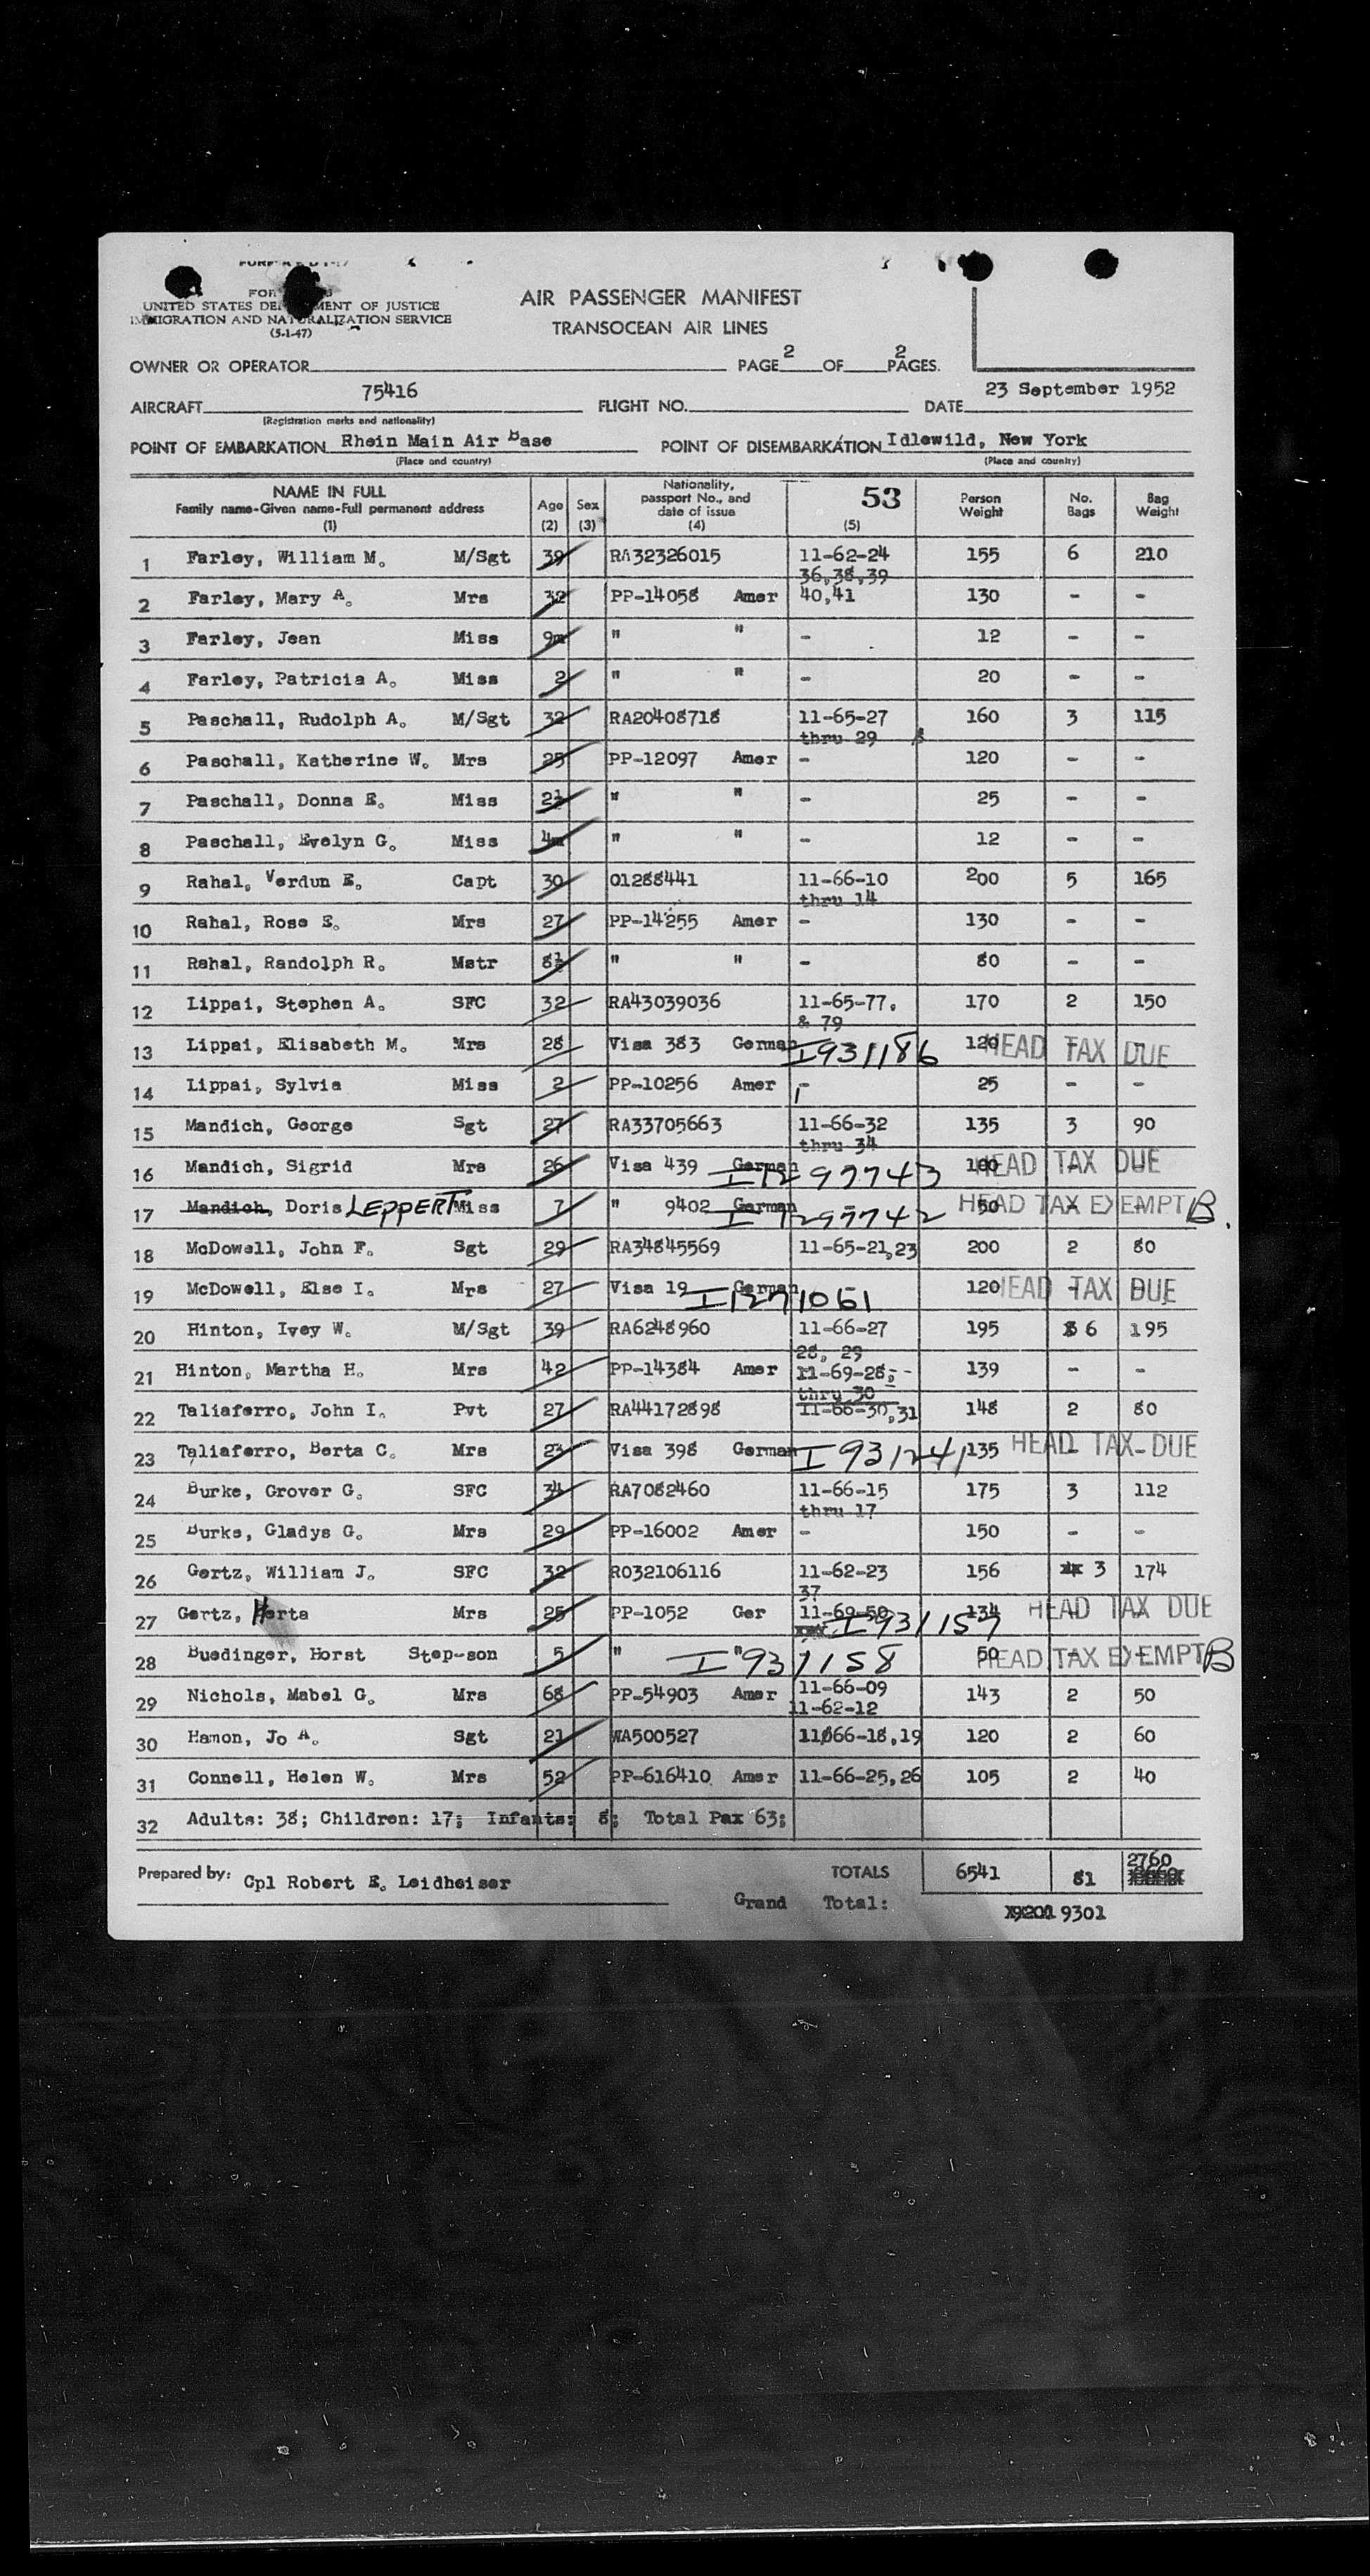 UNITED STATES OF JUSTICE
IMMIGRATION AND NATURALIZATION SERVICE
(5-1-47)
AIR PASSENGER MANIFEST
TRANSOCEAN AIR LINES
OWNER OR OPERATOR PAGE 2 OF 2 PAGES.
AIRCRAFT 75416 FLIGHT NO. DATE 23 September 1952
(Registration marks and nationality)
POINT OF EMBARKATION Rhein Main Air Base POINT OF DISEMBARKATION Idlewild, New York
(Place and country) (Place and country)
NAME IN FULL
Family name-Given name-Full permanent address
(1)
Age
(2)
Sex
(3)
Nationality,
passport No., and
date of issue
(4)
53
(5)
Person
Weight
No.
Bags
Bag
Weight
1 Farley, William M. M/Sgt 39 RA32326015 11-62-24 155 6 210
36,38,39
2 Farley, Mary A. Mrs 32 PP-14058 Amer 40,41 130 - -
3 Farley, Jean Miss 9m " " - 12 - -
4 Farley, Patricia A. Miss 2 " " - 20 - -
5 Paschall, Rudolph A. M/Sgt 32 RA20408718 11-65-27 160 3 115
thru 29
6 Paschall, Katherine W. Mrs 25 PP-12097 Amer - 120 - -
7 Paschall, Donna E. Miss 2½ " " - 25 - -
8 Paschall, Evelyn G. Miss 4m " " - 12 - -
9 Rahal, Verdun E. Capt 30 01288441 11-66-10 200 5 165
thru 14
10 Rahal, Rose E. Mrs 27 PP-14255 Amer - 130 - -
11 Rahal, Randolph R. Mstr 8½ " " - 80 - -
12 Lippai, Stephen A. SFC 32 RA43039036 11-65-77, 170 2 150
& 79
13 Lippai, Elisabeth M. Mrs 28 Visa 383 German I931186 120 HEAD TAX DUE
14 Lippai, Sylvia Miss 2 PP-10256 Amer - 25 - -
15 Mandich, George Sgt 27 RA33705663 11-66-32 135 3 90
thru 34
16 Mandich, Sigrid Mrs 26 Visa 439 German I1297743 100 HEAD TAX DUE
17 Mandich, Doris LEPPERT Miss 7 " 9402 German I1297742 50 HEAD TAX EXEMPT B.
18 McDowell, John F. Sgt 29 RA34845569 11-65-21,23 200 2 80
19 McDowell, Else I. Mrs 27 Visa 19 German I1271061 120 HEAD TAX DUE
20 Hinton, Ivey W. M/Sgt 39 RA6248960 11-66-27 195 6 195
28, 29
21 Hinton, Martha H. Mrs 42 PP-14384 Amer 11-69-28,- 139 - -
thru 30
22 Taliaferro, John I. Pvt 27 RA44172898 11-66-30,31 148 2 80
23 Taliaferro, Berta C. Mrs 23 Visa 398 German I931241 135 HEAD TAX DUE
24 Burke, Grover G. SFC 34 RA7082460 11-66-15 175 3 112
thru 17
25 Burke, Gladys G. Mrs 29 PP-16002 Amer - 150 - -
26 Gertz, William J. SFC 32 RO32106116 11-62-23 156 3 174
37
27 Gertz, Herta Mrs 25 PP-1052 Ger 11-69-50 I931157 134 HEAD TAX DUE
28 Buedinger, Horst Step-son 5 " " I931158 50 HEAD TAX EXEMPT B
29 Nichols, Mabel G. Mrs 68 PP-54903 Amer 11-66-09 143 2 50
11-62-12
30 Hamon, Jo A. Sgt 21 WA500527 11066-18,19 120 2 60
31 Connell, Helen W. Mrs 52 PP-616410 Amer 11-66-25,26 105 2 40
32 Adults: 38; Children: 17; Infants: 8; Total Pax 63;
Prepared by: Cpl Robert E. Leidheiser TOTALS 6541 81 2760
Grand Total: 9301